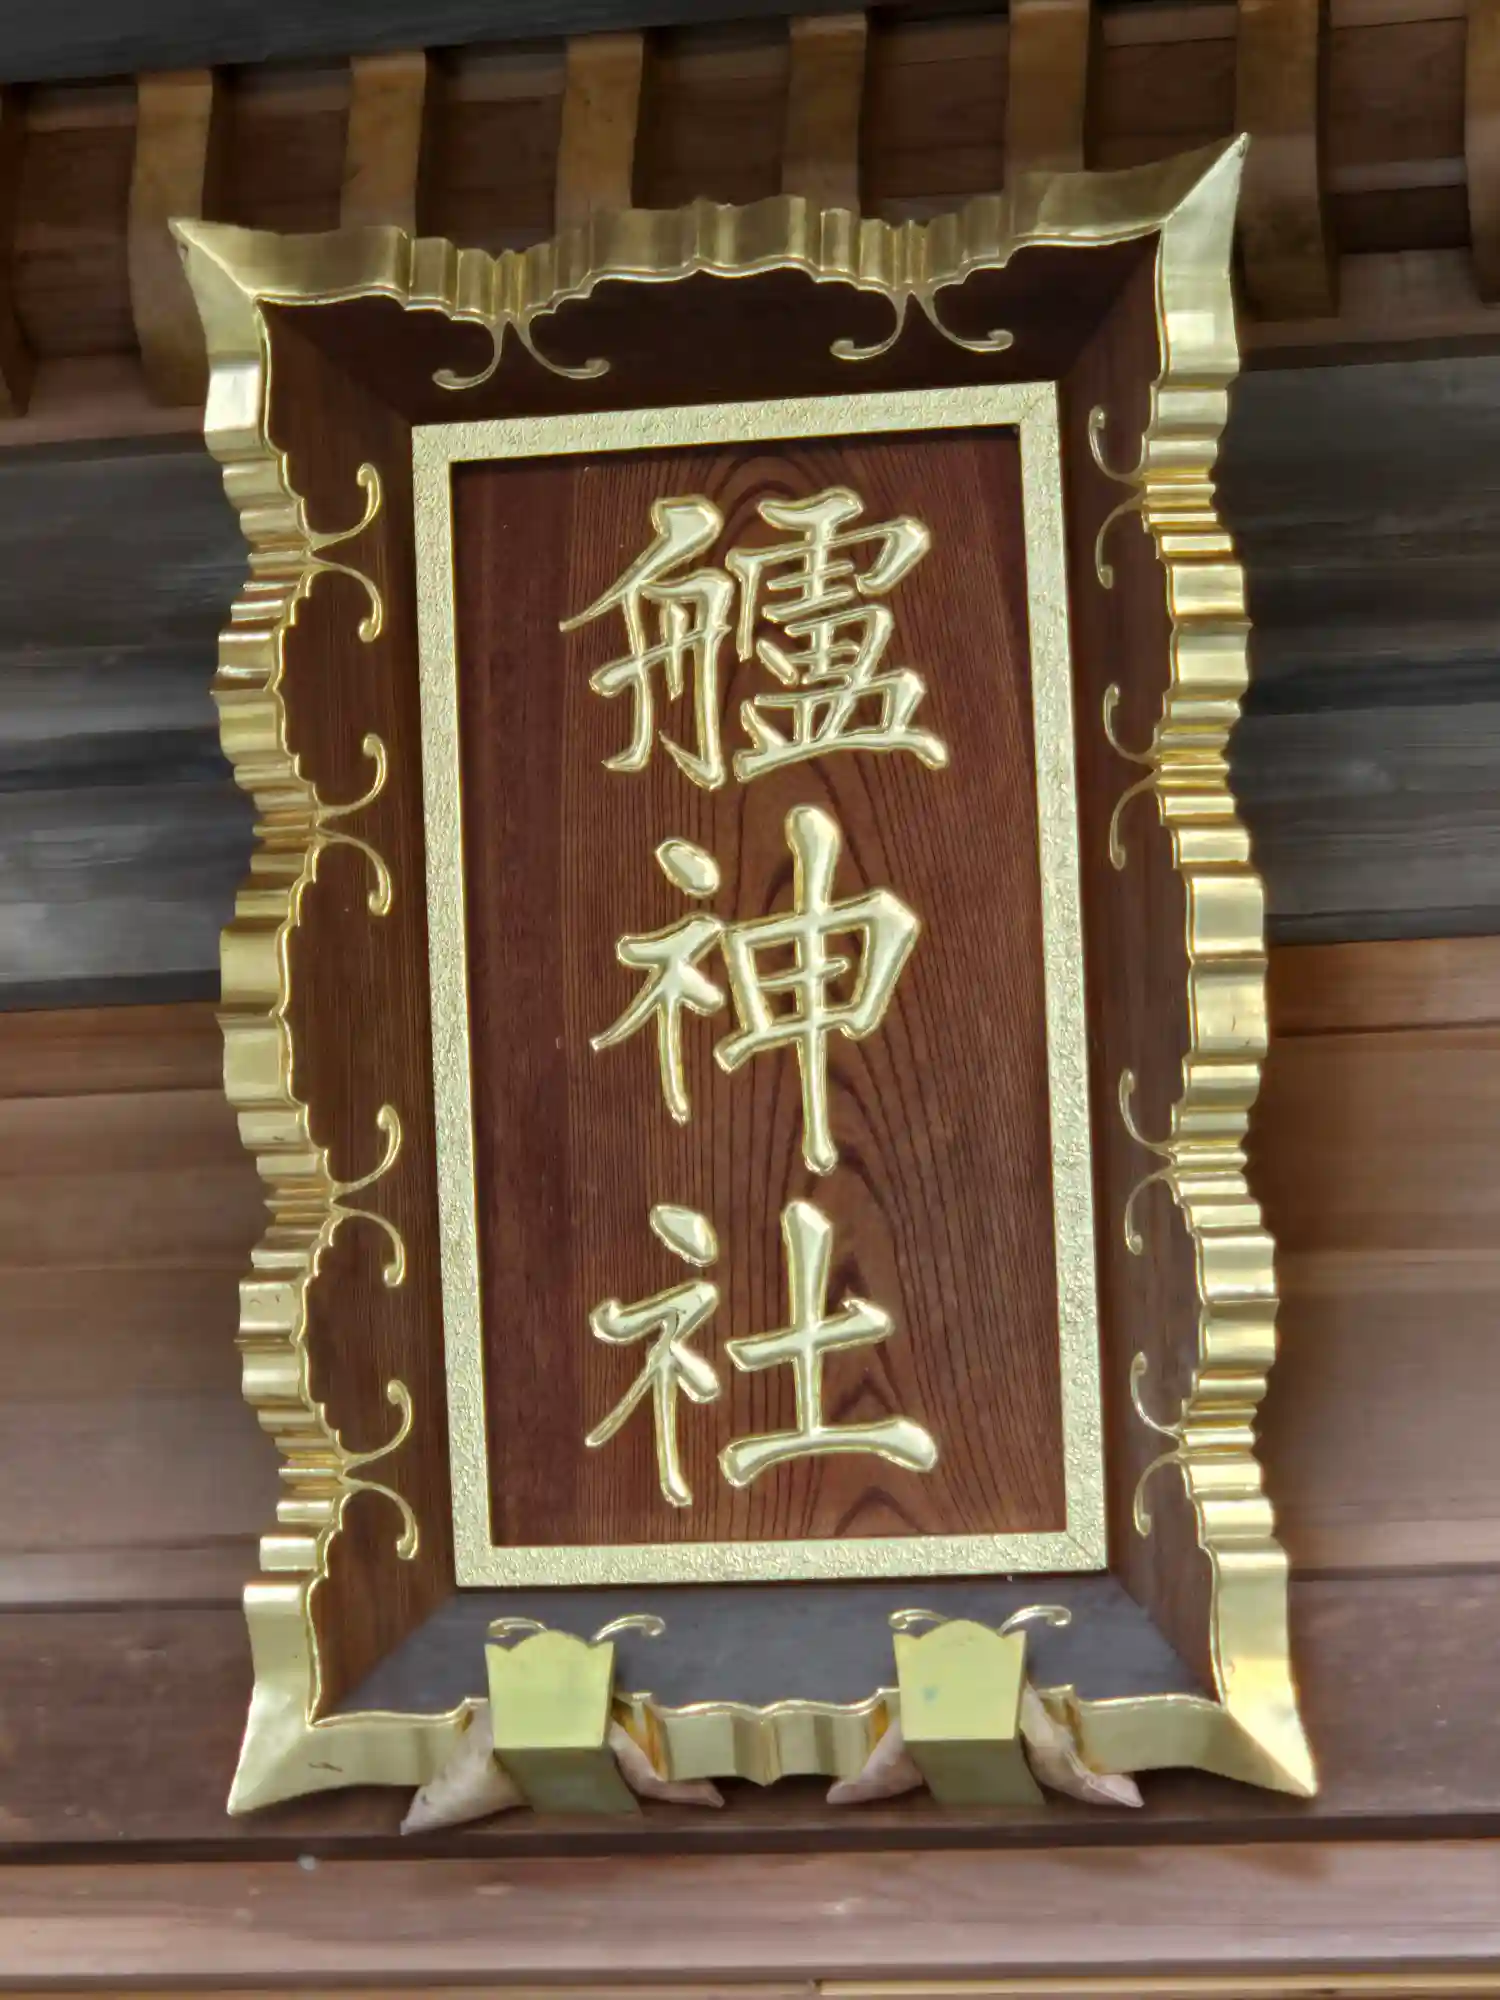 艫神社